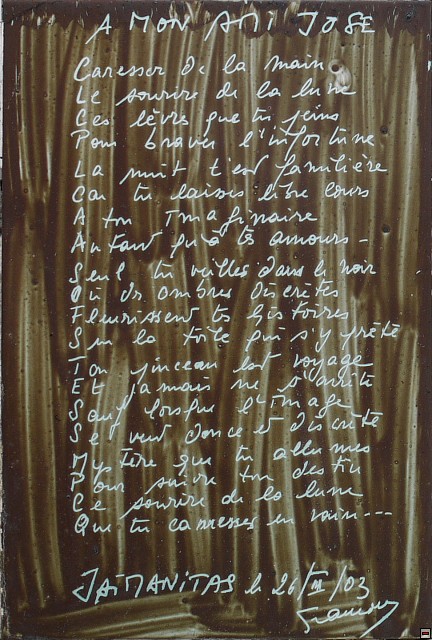 A MON AMI JOSE
Caresser de la main
Le sourire de la lune
Ces lèvres que tu peins
Pour braver l'infortune
La nuit t'est familière
Car tu laisses libre cours
A ton Imaginaire
Autant qu'à tes amours -
Seul tu veilles dans le noir
Où des ombres discrètes
Fleurissent tes histoires
Sur la toile qui s'y prête
Ton pinceau est voyage
Et jamais ne s'arrête
Sauf lorsque l'Image
Se veut douce et discrète
Mystère que tu allumes
Pour suivre ton destin
Ce sourire de la lune
Que tu caresses en vain ---
JAÏMANITAS le 26/III/03